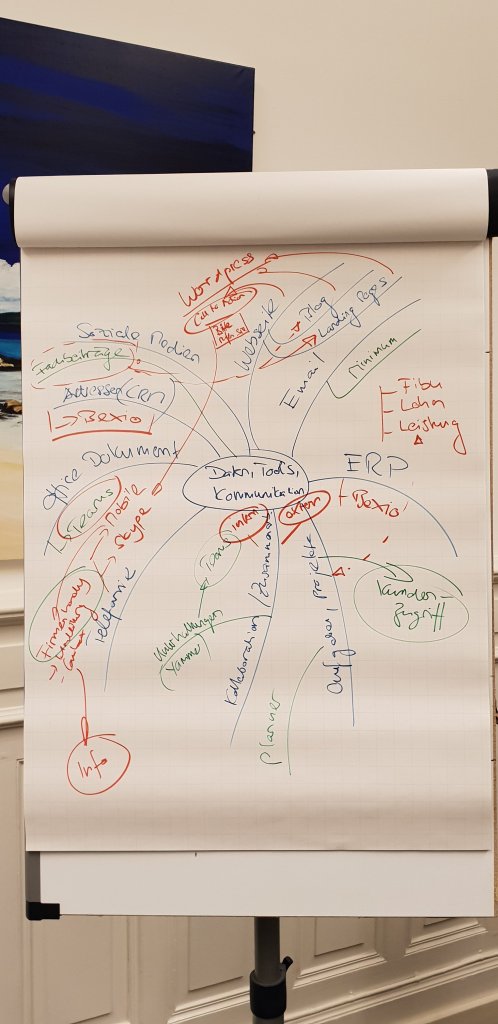 Wordpress
Call to Action
Soziale Medien
Fachbeiträge
Adressen CRM
→ Bexio
Office Dokument
→ Teams
Webseite
→ Blog
Landing Pages
Email
Minimum
Fibu
Lohn
Leistung
ERP
Bexio
Daten, Tools,
Kommunikation
intern
extern
→ Mobile
→ Skype
Telefonie
Firmenhandy
Info
Teams
Unterhaltungen
Yammer
Kollaboration / Zusammenar
Aufgaben, Projekte
Planner
Kunden-
Zugriff